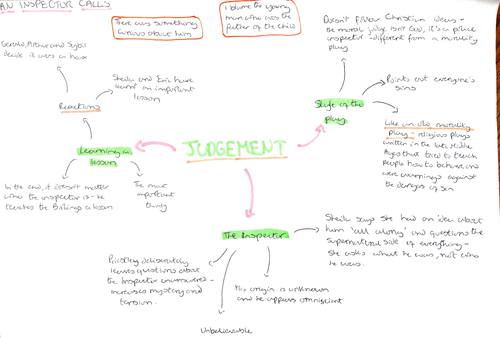 AN INSPECTOR CALLS
There was something
curious about him
I blame the young
man who was the
father of the child
Doesn't follow Christian ideas -
the moral judge isn't God, it's a police
inspector - different from a morality
play
Gerald, Arthur and Sybil
decide it was a hoax
Sheila and Eric have
learnt an important
lesson
Reactions
Points out everyone's
sins
Style of the
play
Like an old morality
play - religious plays
written in the late Middle
Ages that tried to teach
people how to behave and
were warnings against
the dangers of sin
Learning a
lesson
JUDGEMENT
In the end, it doesn't matter
who the inspector is - he
teaches the Birlings a lesson
The most
important
thing
The Inspector
Sheila says she had an 'idea' about
him 'all along' and questions the
supernatural side of everything -
she asks what he was, not who
he was.
Priestley deliberately
leaves questions about
the Inspector unanswered -
increases mystery and
tension.
His origin is unknown
and he appears omniscient
Unbelievable